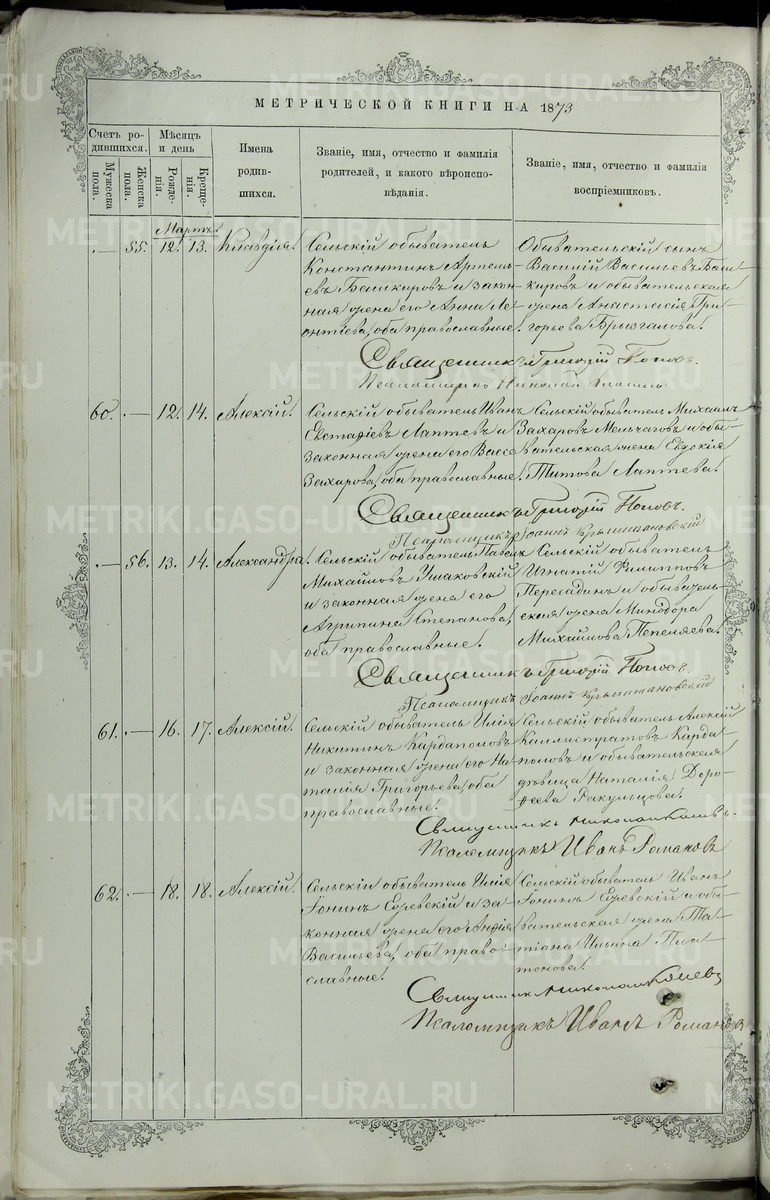 МЕТРИЧЕСКОЙ КНИГИ НА 1873
Счетъ родившихся.
Мужеска пола.
Женска пола.
Мѣсяцъ и день
Рожденія.
Крещенія.
Имена родившихся.
Званіе, имя, отчество и фамилія родителей, и какого вѣроисповѣданія.
Званіе, имя, отчество и фамилія воспріемниковъ.
Мартъ.
55. 12. 13. Клавдія.
Сельскій обыватель
Константинъ Артемь-
евъ Башкировъ и закон-
ная жена его Анна Ле-
онтіева, оба православные.
Обывательскій сынъ
Василій Васильевъ Баш-
кировъ и обывательская
жена Анастасія Гри-
горьева Брызгалова.
Священникъ Григорій Поповъ.
Николай
60. 12. 14. Алексій.
Сельскій обыватель Иванъ
Евстафіевъ Лаптевъ и
законная жена его Васса
Захарова, оба православные.
Сельскій обыватель Михаилъ
Захаровъ Мельчаговъ и обы-
вательская жена Евдокія
Титова Лаптева.
Священникъ Григорій Поповъ.
Псаломщикъ Іоаннъ
56. 13. 14. Александра.
Сельскій обыватель Павелъ
Михайловъ Ушаковскій
и законная жена его
Агрипина Степанова,
оба православные.
Сельскій обыватель
Игнатій Филипповъ
и обыватель-
ская жена Минодора
Михайлова Пепеляева.
Священникъ Григорій Поповъ.
Псаломщикъ Іоаннъ
61. 16. 17. Алексій.
Сельскій обыватель Илія
Никитинъ Кардаполовъ
и законная жена его На-
талія Григорьева, оба
православные.
Сельскій обыватель Алексій
Каллистратовъ Карда-
половъ и обывательская
дѣвица Наталія Доро-
феева Ракульцова.
Священникъ Николай
Псаломщикъ Иванъ Романовъ
62. 18. 18. Алексій.
Сельскій обыватель Илія
Іонинъ и за-
конная жена его
Васильева, оба право-
славные.
Сельскій обыватель Иванъ
Іонинъ и обы-
вательская жена Та-
тіана Ильина Пла-
тонова.
Священникъ Николай
Псаломщикъ Иванъ Романовъ
METRIKI.GASO-URAL.RU